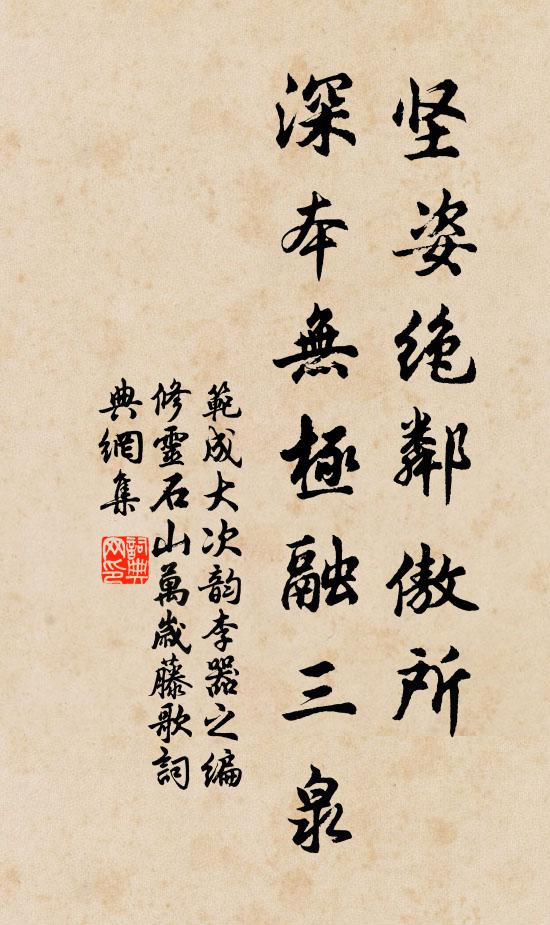 坚姿绝鄰傲所
深本無極融三泉
範成大次韵李器之编
修靈石山萬歲藤歌詞
典網集
詞典网印